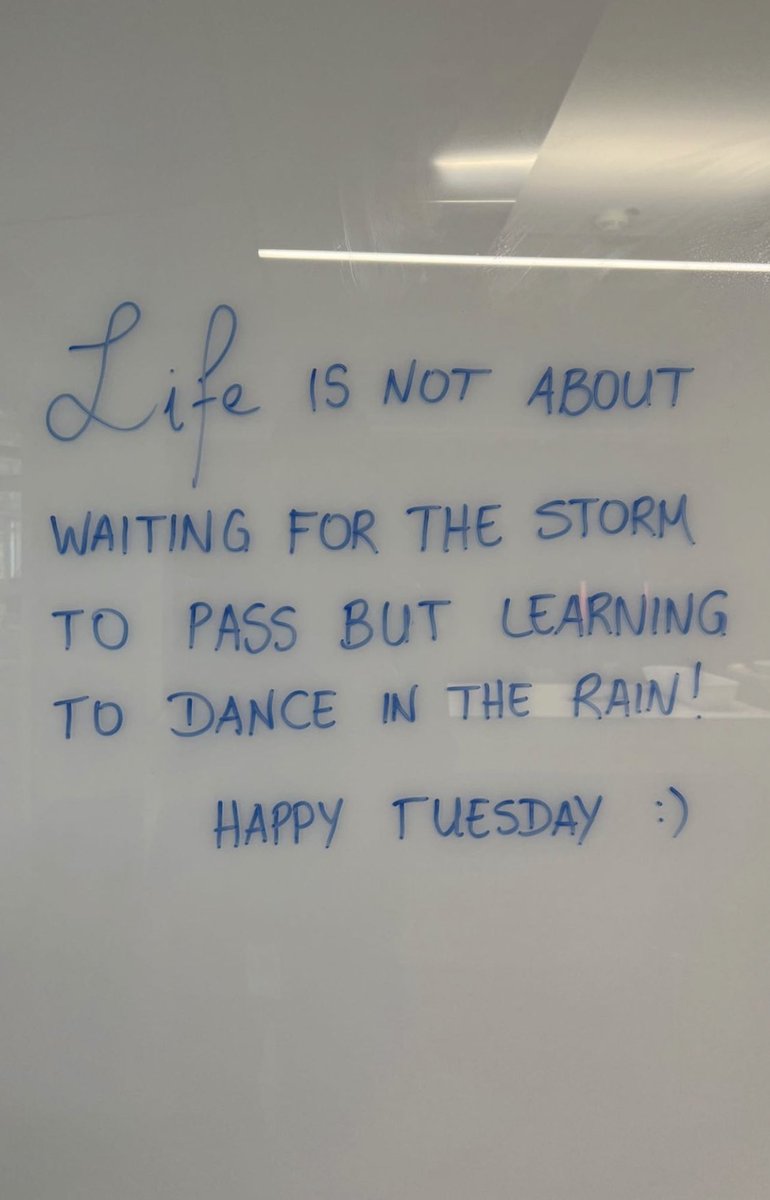 Life IS NOT ABOUT
WAITING FOR THE STORM
TO PASS BUT LEARNING
TO DANCE IN THE RAIN!
HAPPY TUESDAY :)